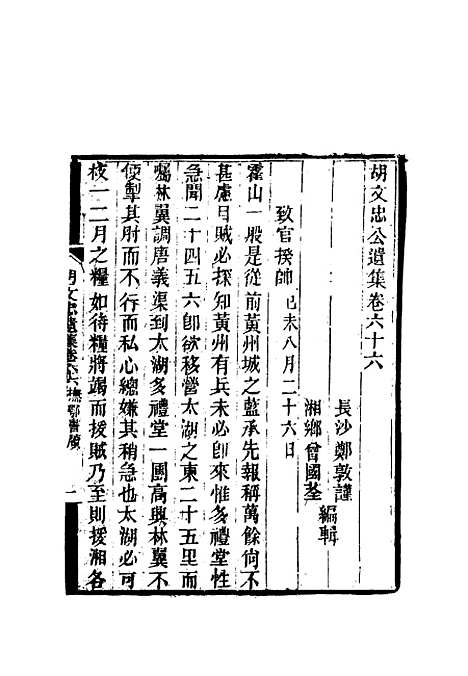 胡文忠公遺集卷六十六
長沙鄭敦謹
湘鄉曾國荃
編輯
致官揆帥己未八月二十六日
霍山一股是從前黃州城之藍承先報稱萬餘尙不
甚虛目賊必探知黃州有兵未必卽來惟多禮堂性
急聞二十四五六卽欲移營太湖之東二十五里而
囑林翼調唐義渠到太湖多禮堂一團高興林翼不
便掣其肘而不行而私心總嫌其稍急也太湖必可
枝一二月之糧如待糧將竭而援賊乃至則援湘各
胡文忠遺集卷六十六撫鄂書牘
一